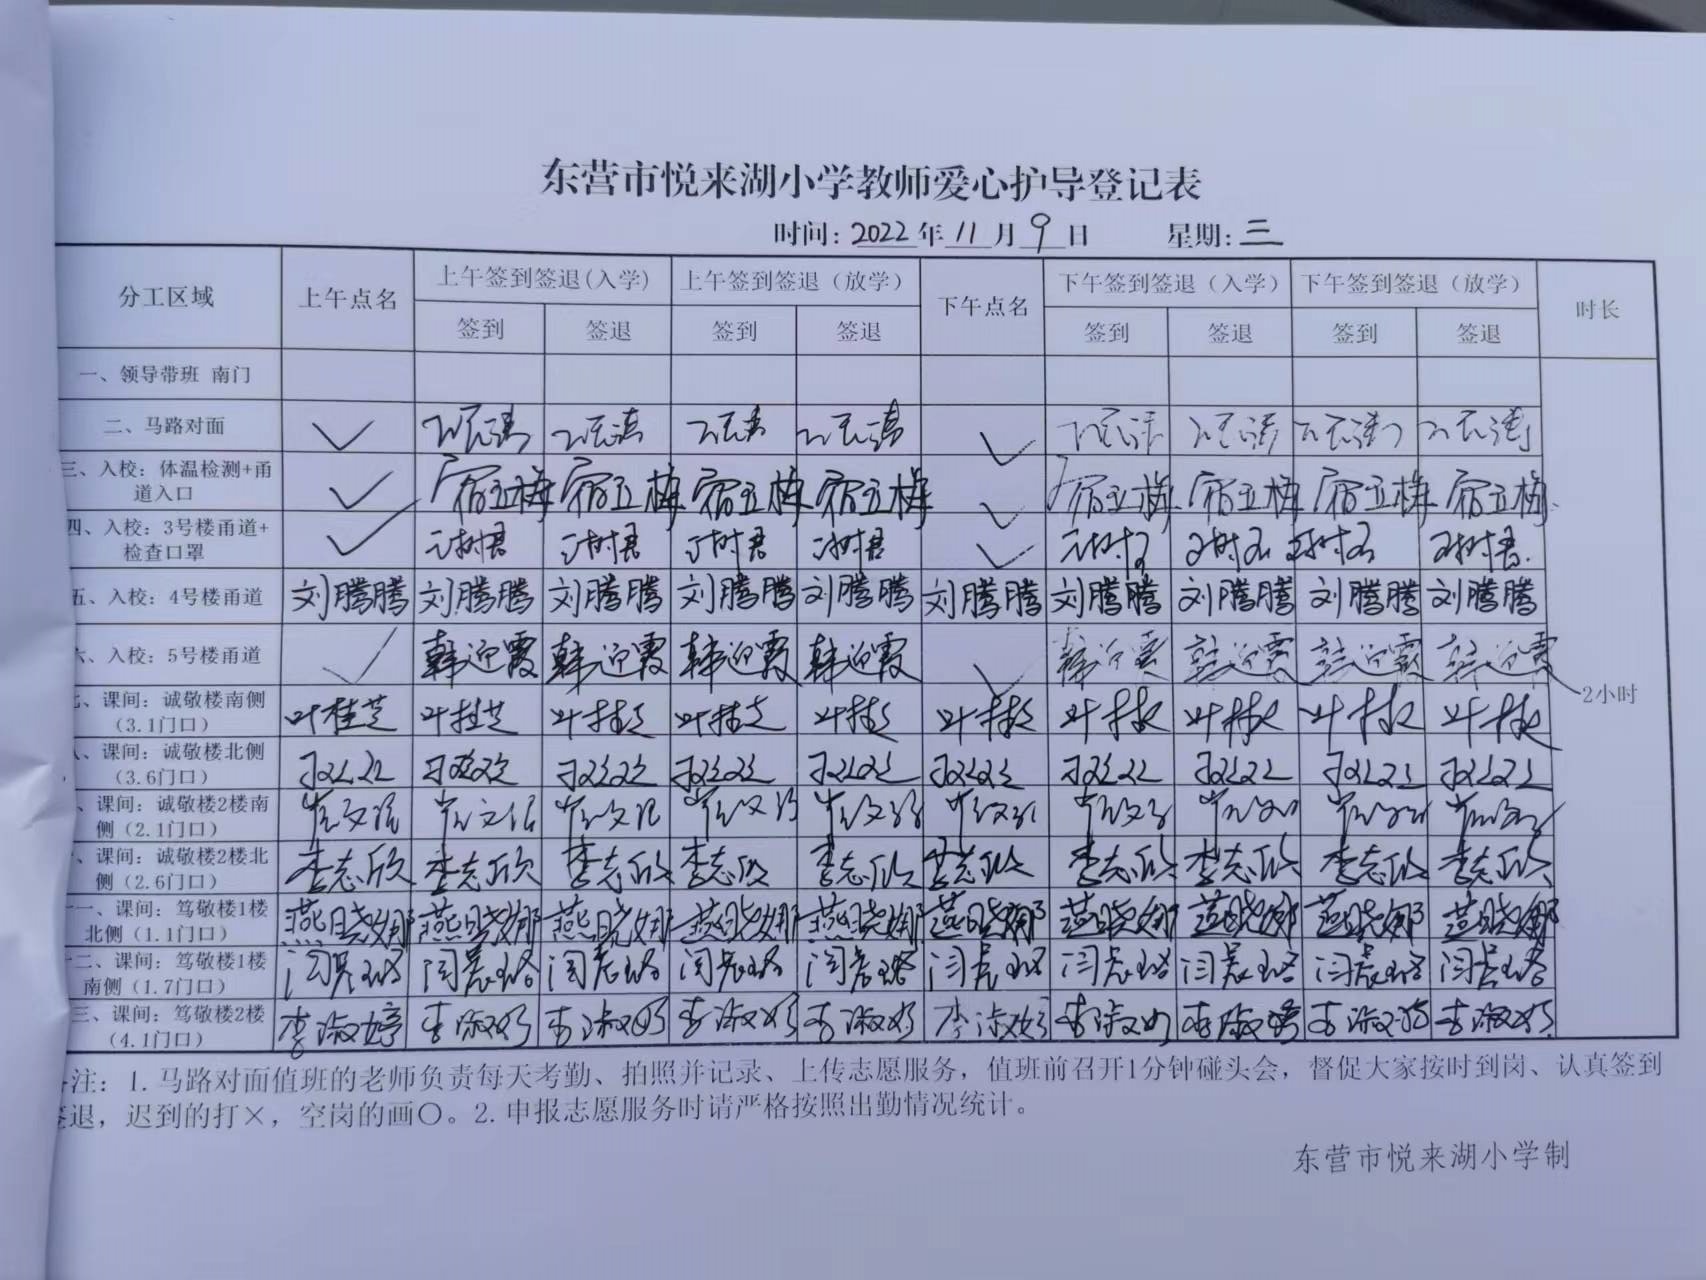 东营市悦来湖小学教师爱心护导登记表
时间: 2022 年 11 月 9 日 星期: 三
分工区域 上午点名 上午签到签退(入学) 上午签到签退（放学） 下午点名 下午签到签退（入学） 下午签到签退（放学） 时长
签到 签退 签到 签退 签到 签退 签到 签退
一、领导带班 南门
二、马路对面 ✓ ✓
三、入校：体温检测+甬
道入口 ✓ 宿立梅 宿立梅 宿立梅 宿立梅 ✓ 宿立梅 宿立梅 宿立梅 宿立梅
四、入校：3号楼甬道+
检查口罩 ✓ ✓
五、入校：4号楼甬道 刘腾腾 刘腾腾 刘腾腾 刘腾腾 刘腾腾 刘腾腾 刘腾腾 刘腾腾 刘腾腾 刘腾腾
六、入校：5号楼甬道 ✓ 韩迎霞 韩迎霞 韩迎霞 韩迎霞 ✓ 韩迎霞 韩迎霞 韩迎霞 韩迎霞
七、课间：诚敬楼南侧
（3.1门口） 叶桂芝 叶桂芝 叶桂芝 叶桂芝 叶桂芝 叶桂芝 叶桂芝 叶桂芝 叶桂芝 叶桂芝
2小时
、课间：诚敬楼北侧
（3.6门口）
、课间：诚敬楼2楼南
侧（2.1门口）
、课间：诚敬楼2楼北
侧（2.6门口） 李志欣 李志欣 李志欣 李志欣 李志欣 李志欣 李志欣 李志欣 李志欣 李志欣
一、课间：笃敬楼1楼
北侧（1.1门口） 燕晓娜 燕晓娜 燕晓娜 燕晓娜 燕晓娜 燕晓娜 燕晓娜 燕晓娜 燕晓娜 燕晓娜
二、课间：笃敬楼1楼
南侧（1.7门口） 闫晨璐 闫晨璐 闫晨璐 闫晨璐 闫晨璐 闫晨璐 闫晨璐 闫晨璐 闫晨璐 闫晨璐
三、课间：笃敬楼2楼
（4.1门口） 李淑婷 李淑婷 李淑婷 李淑婷 李淑婷 李淑婷 李淑婷 李淑婷 李淑婷 李淑婷
注：1.马路对面值班的老师负责每天考勤、拍照并记录、上传志愿服务，值班前召开1分钟碰头会，督促大家按时到岗、认真签到
签退，迟到的打×，空岗的画○。2.申报志愿服务时请严格按照出勤情况统计。
东营市悦来湖小学制